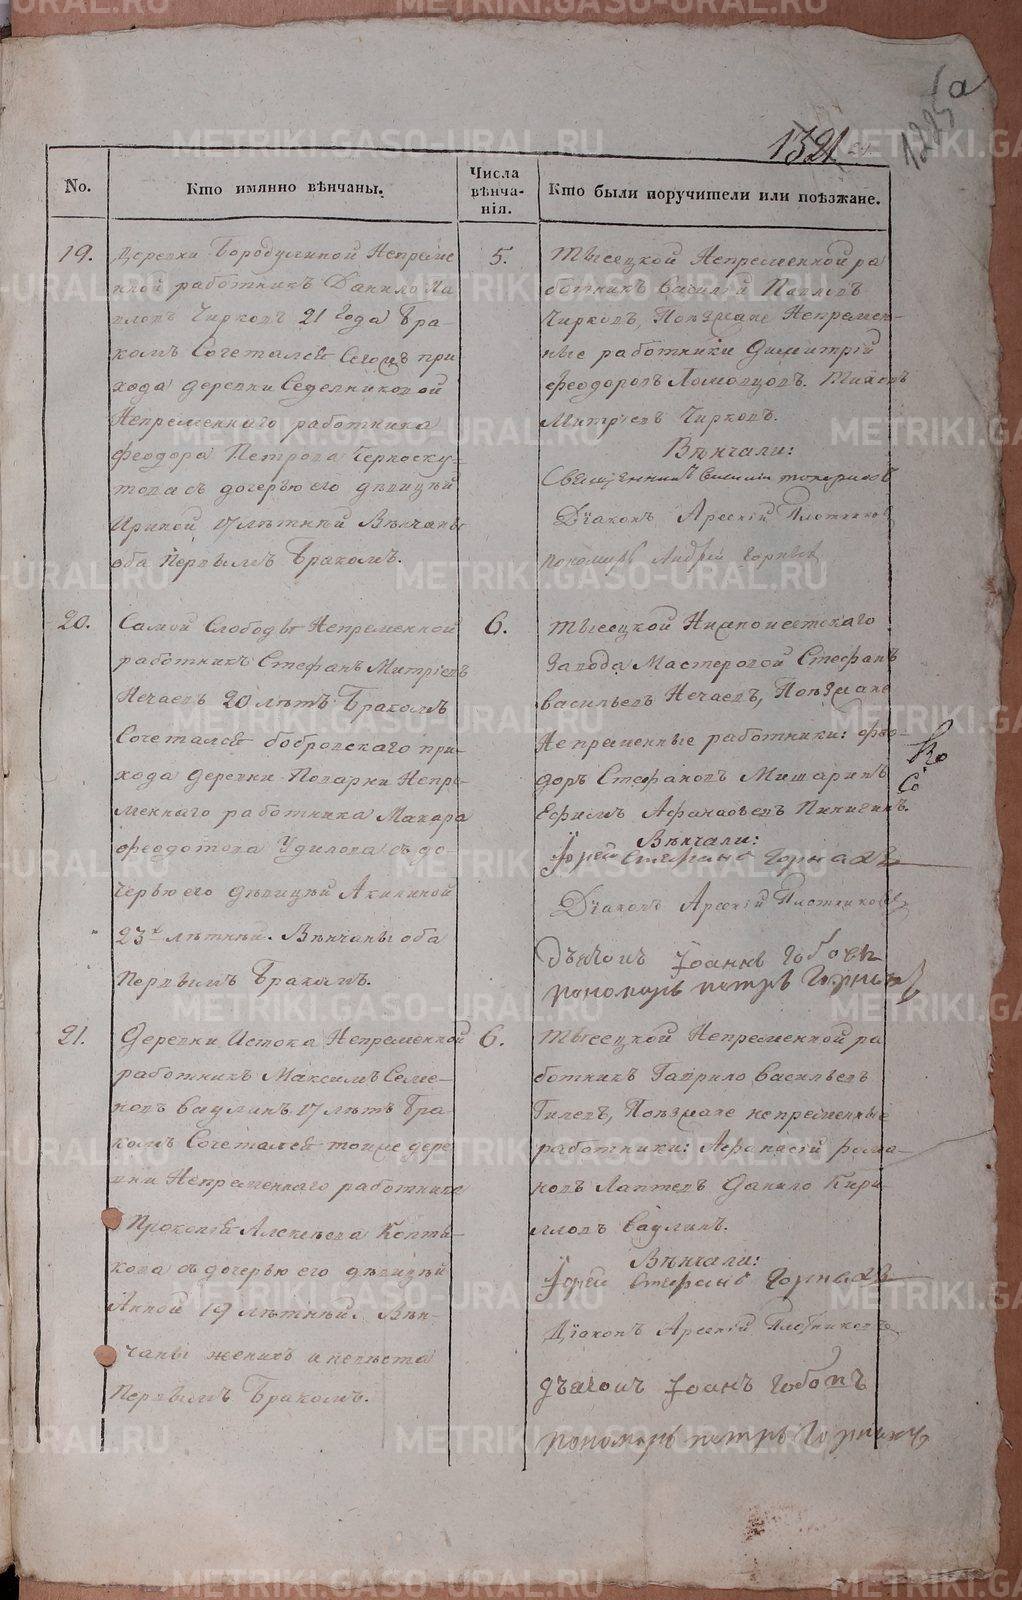 1321
1225
No.
Кто имянно вѣнчаны.
Числа
вѣнча-
нія.
Кто были поручители или поѣзжане.
19.
Деревни Бородулиной Непреме
нной работникъ Данило Па
вловъ Чирковъ 21 года Бра-
комъ Сочетался Сегожъ при
хода деревни Седелниковой
Непременнаго работника
Феодора Петрова Черноску-
това съ дочерью его девицей
Ириной 17 лѣтней Вѣнчаны
оба Первымъ Бракомъ.
5.
Тысецкой Непременной ра
ботникъ Василей Павловъ
Чирковъ, Поѣзжане Непремен-
ные работники Димитрій
Феодоровъ Ломовцовъ.
Митріевъ Чирковъ.
Вѣнчали:
Священникъ Василій Топорковъ
Діаконъ Арсеній Плотников
Пономарь Андрей Горных
20.
Самой Слободы Непременной
работникъ Стефанъ Митріевъ
Нечаевъ 20 лѣтъ Бракомъ
Сочетался бобровскаго при-
хода деревни Поварни Непре-
менного работника Макара
Феодотова Удилова съ до-
черью его девицей Акилиной
23х лѣтней. Вѣнчаны оба
Первымъ Бракомъ.
6.
Тысецкой Нижноисетскаго
Завода Мастеровой Стефанъ
Васильевъ Нечаевъ, Поѣзжане
Непременные работники: Фео-
доръ Стефановъ Мишаринъ
Ефимъ Афанасьевъ Пинигинъ.
Вѣнчали:
Іерей Стефанъ Горныхъ
Діаконъ Арсеній Плотниковъ
Дьячокъ Іоаннъ Бобо
пономарь петръ Горных
21.
Деревни Истока Непременной
работникъ Максимъ Семе-
новъ Ваулинъ 17 лѣтъ Бра
комъ Сочетался тоиже дере
вни Непременнаго работника
Прокопея Алексѣева Коптя-
кова съ дочерью его девицей
Анной 19 лѣтней. Вѣн-
чаны женихъ и невѣста
Первымъ Бракомъ.
6.
Тысецкой Непременной ра
ботникъ Гаврило Васильевъ
Гилевъ, Поѣзжане непременные
работники: Афанасей Рома-
новъ Лаптевъ Данило Кири-
лловъ Ваулинъ.
Вѣнчали:
Іерей Стефанъ Горныхъ
Діаконъ Арсеній Плотниковъ
дьячокъ Іоанъ
пономарь петръ Горныхъ
METRIKI.GASO-URAL.RU